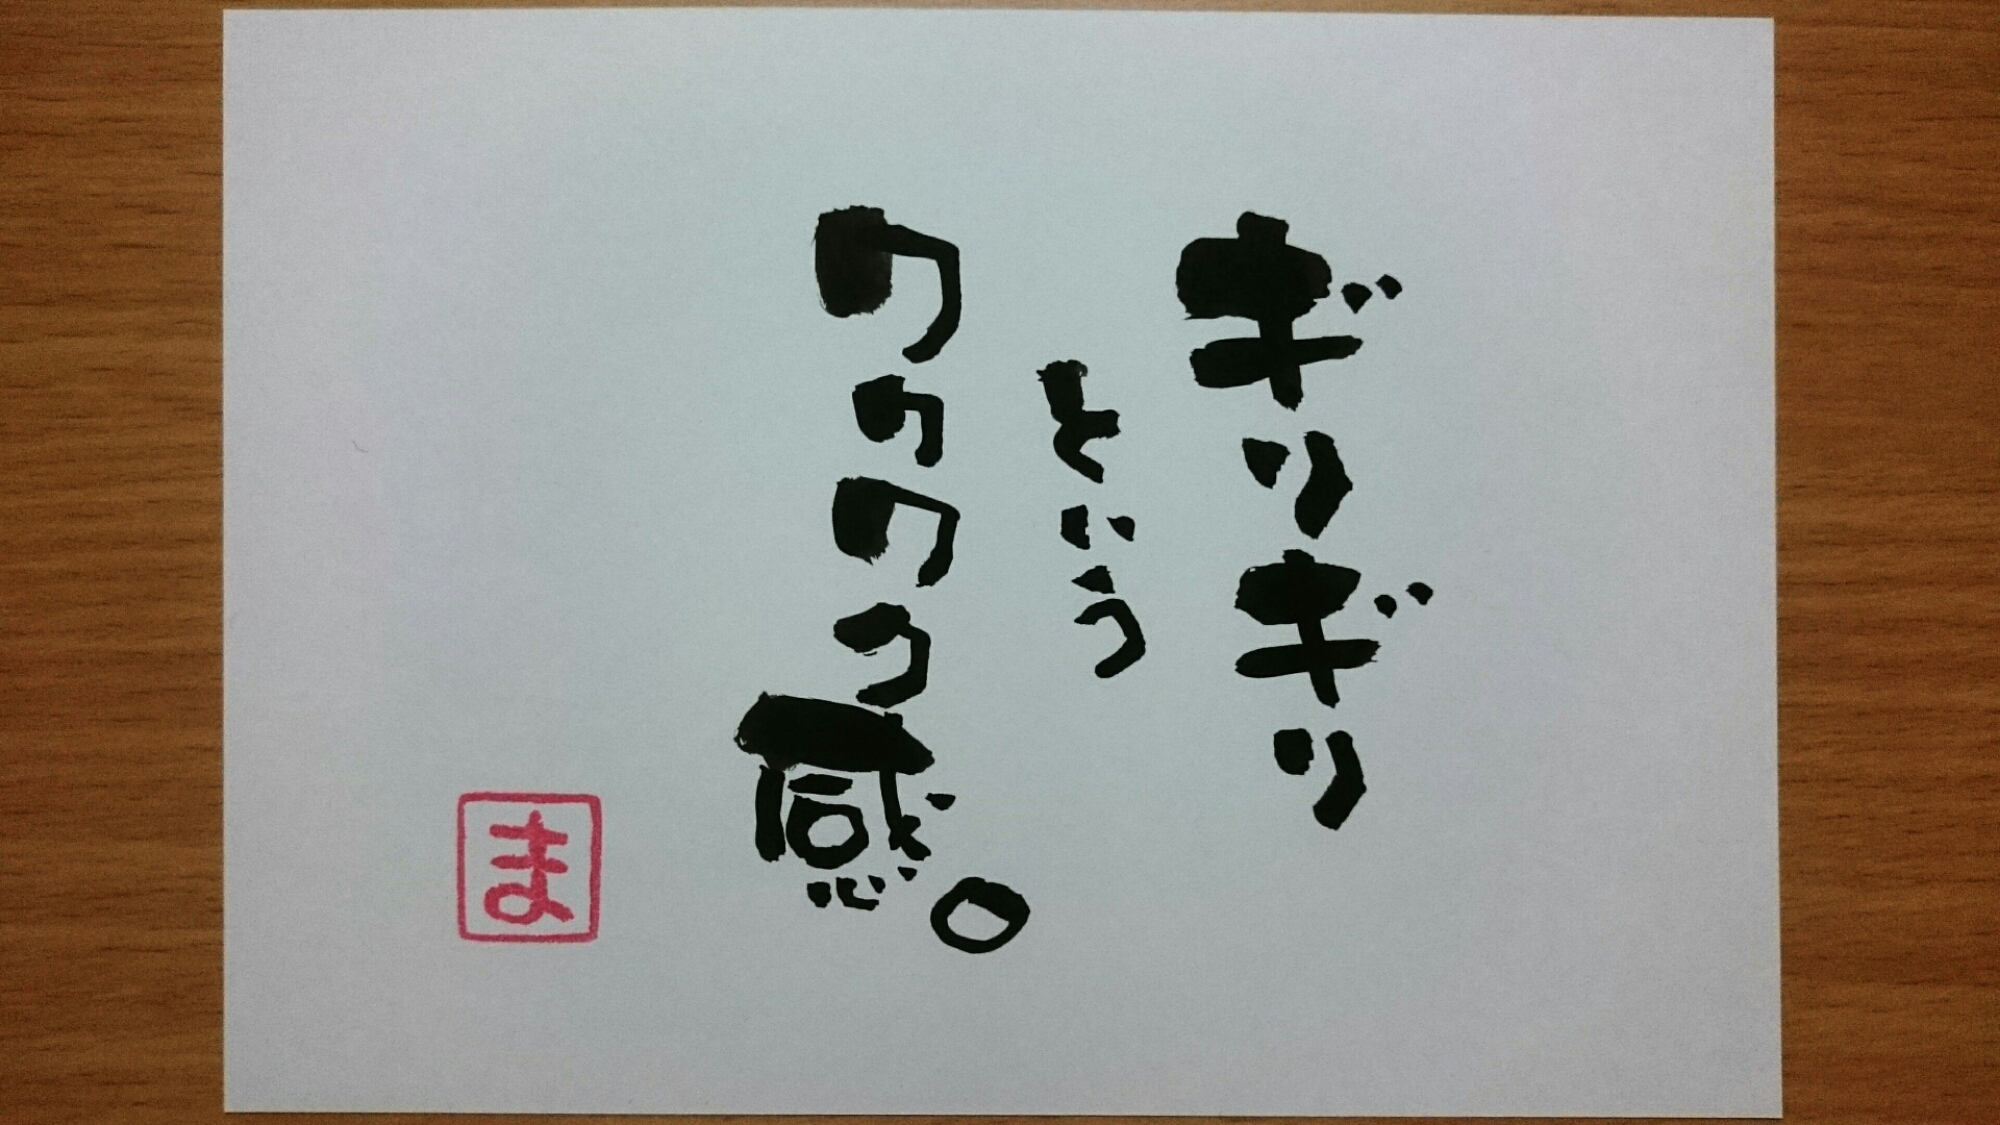 ギリギリ
という
ワクワク感。
ま